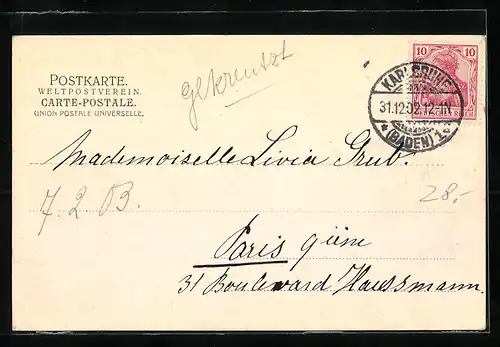 POSTKARTE.
WELTPOSTVEREIN.
CARTE-POSTALE.
UNION POSTALE UNIVERSELLE.
gekreutzt
10 10
KARLSRUHE
31.12.02.12-1N
* (BADEN) 1
Mademoiselle Livia Grub.
7. 2 B.
28.-
Paris
31 Boulevard Haussmann.